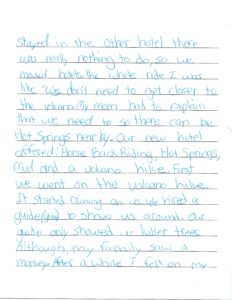 Stayed in the other hotel there
was really nothing to do, so we
moved hotels. The whole ride I was
like "we don't need to get closer to
the volcano. My mom had to explain
that we need to so there can be
Hot Springs near by. Our new hotel
offered: Horse Back Riding, Hot Springs,
Mud and a volcano hike. First
we went on the volcano hike.
It started raining on us we hired a
guide to show us around. Our
guide only showed us killer trees
Although, my family saw a
monkey. After a while I fell on my